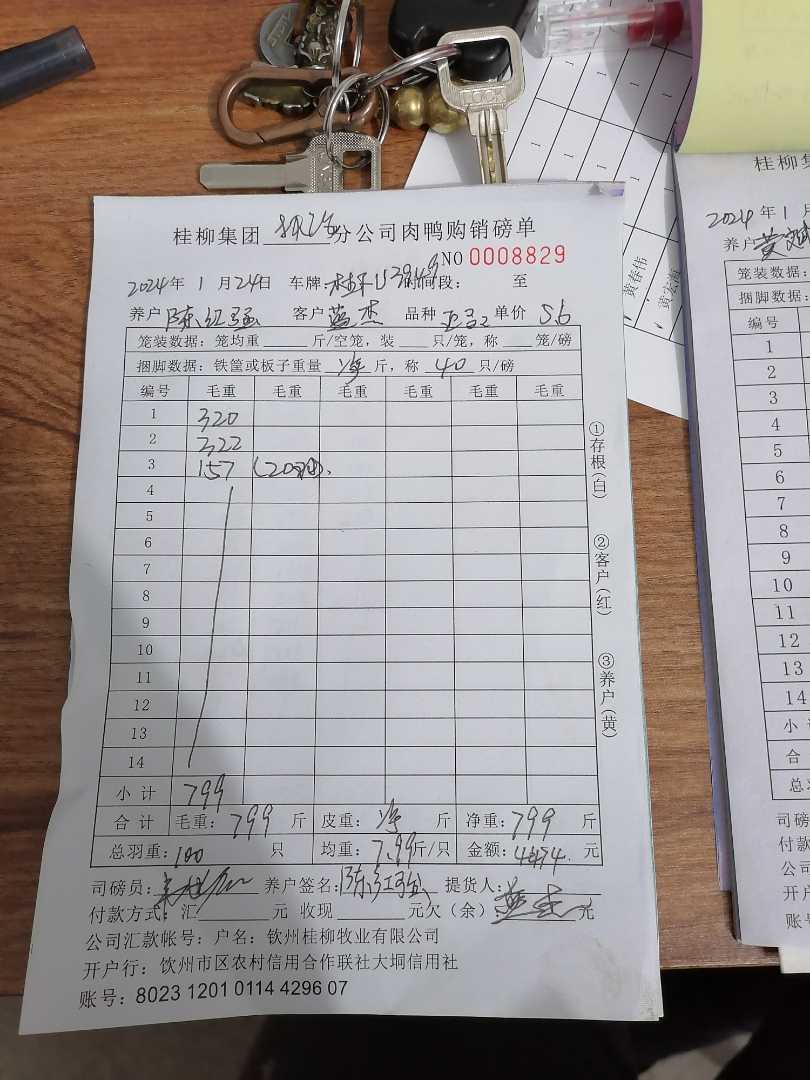 桂柳集团 分公司肉鸭购销磅单
NO 0008829
2024年 1月24日 车牌: 时间段: 至
养户 陈红强 客户 蓝杰 品种 单价 5.6
笼装数据: 笼均重 斤/空笼, 装 只/笼, 称 笼/磅
捆脚数据: 铁筐或板子重量 净 斤, 称 40 只/磅
编号 毛重 毛重 毛重 毛重 毛重 毛重
1 320
2 322
3 157 (20羽).
4
5
6
7
8
9
10
11
12
13
14
小计 799
合计 毛重: 799 斤 皮重: 净 斤 净重: 799 斤
总羽重: 100 只 均重: 7.99斤/只 金额: 4474. 元
司磅员: 养户签名: 陈红强 提货人:
付款方式: 汇 元 收现 元欠(余) 元
公司汇款帐号: 户名: 钦州桂柳牧业有限公司
开户行: 钦州市区农村信用合作联社大垌信用社
账号: 8023 1201 0114 4296 07
①存根(白)
②客户(红)
③养户(黄)
黄春伟
桂柳集
2024 年 1 月
养户
笼装数据:
捆脚数据:
编号
1
2
3
4
5
6
7
8
9
10
11
12
13
14
小计
合
总羽
司磅
付款
公司
开户
账号